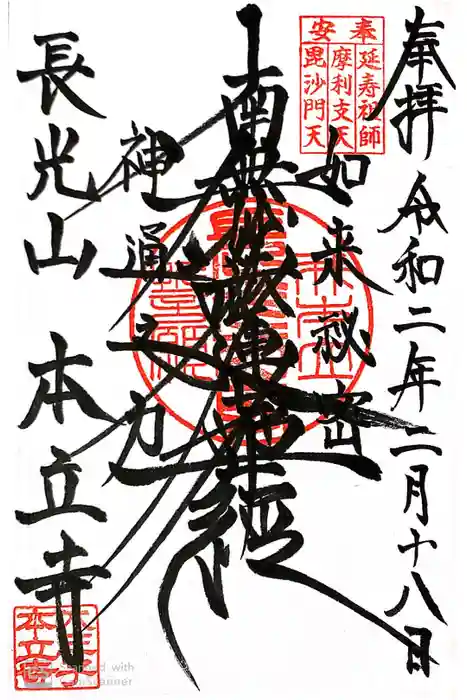 奉拝 令和二年二月十八日
奉安
延寿祖師
摩利支天
毘沙門天
如来秘密
南無妙法蓮華経
神通之力
長光山 本立寺
Scanned with
CamScanner